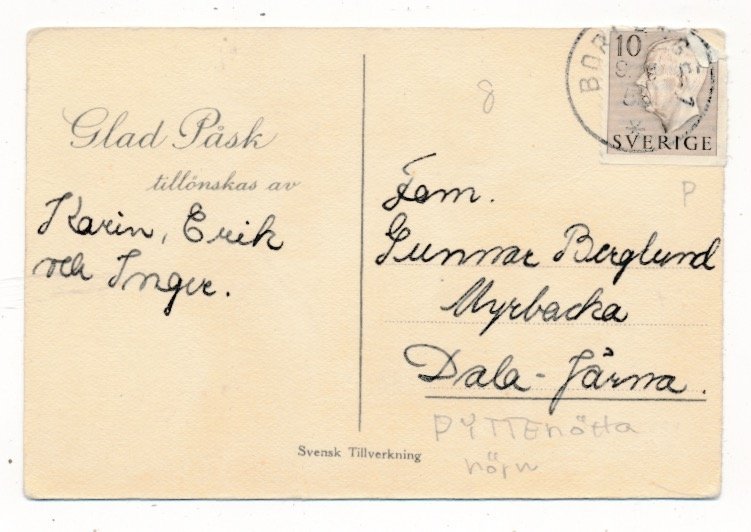 Glad Påsk
tillönskas av
Karin, Erik
och Inger.
10
SVERIGE
8
P
Fam.
Gunnar Berglund
Myrbacka
Dala-Järna.
Svensk Tillverkning